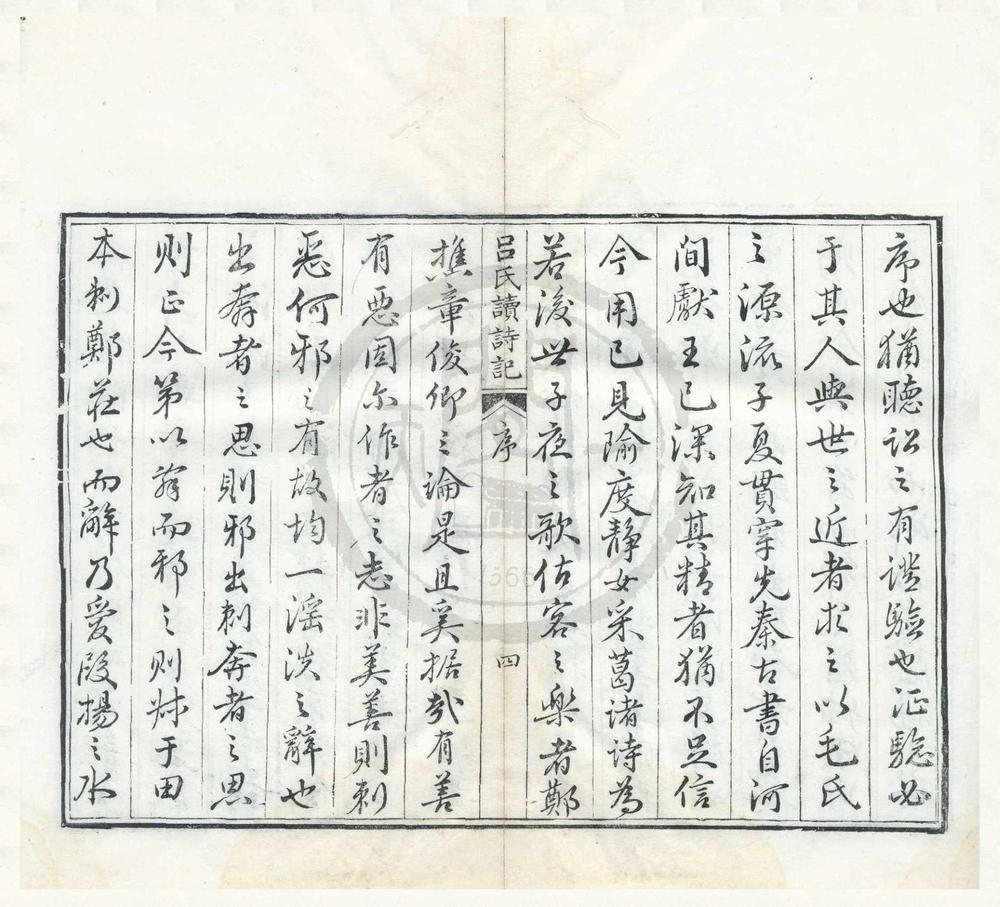 序也猶聽訟之有證驗也证驗必
于其人與世之近者求之以毛氏
之源流子夏貫穿先秦古書自河
間獻王已深知其精者猶不足信
今用己見隃度靜女采葛諸詩為
若後世子夜之歌估客之樂者鄭
呂氏讀詩記
序
四
樵章俊卿之論是且奚据哉有善
有惡固尔作者之志非美善則刺
惡何邪之有故均一淫泆之辭也
出奔者之思則邪出刺奔者之思
則正今第以辭而邪之則叔于田
本刺鄭莊也而辭乃愛段揚之水